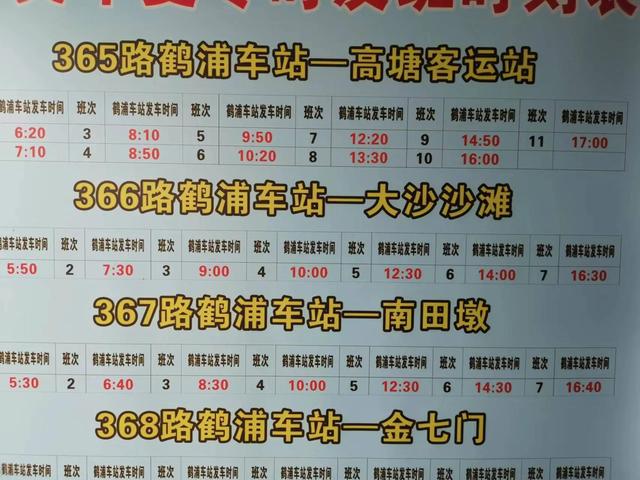 365路鹤浦车站—高塘客运站
鹤浦车站发车时间 班次 鹤浦车站发车时间 班次 鹤浦车站发车时间 班次 鹤浦车站发车时间 班次 鹤浦车站发车时间 班次 鹤浦车站发车时间
6:20 3 8:10 5 9:50 7 12:20 9 14:50 11 17:00
7:10 4 8:50 6 10:20 8 13:30 10 16:00
366路鹤浦车站—大沙沙滩
鹤浦车站发车时间 班次 鹤浦车站发车时间 班次 鹤浦车站发车时间 班次 鹤浦车站发车时间 班次 鹤浦车站发车时间 班次 鹤浦车站发车时间 班次 鹤浦车站发车时间
5:50 2 7:30 3 9:00 4 10:00 5 12:30 6 14:00 7 16:30
367路鹤浦车站—南田墩
鹤浦车站发车时间 班次 鹤浦车站发车时间 班次 鹤浦车站发车时间 班次 鹤浦车站发车时间 班次 鹤浦车站发车时间 班次 鹤浦车站发车时间 班次 鹤浦车站发车时间
5:30 2 6:40 3 8:30 4 10:00 5 12:30 6 14:30 7 16:40
368路鹤浦车站—金七门
鹤浦车站发车时间 班次 鹤浦车站发车时间 班次 鹤浦车站发车时间 班次 鹤浦车站发车时间 班次 鹤浦车站发车时间 班次 鹤浦车站发车时间 班次